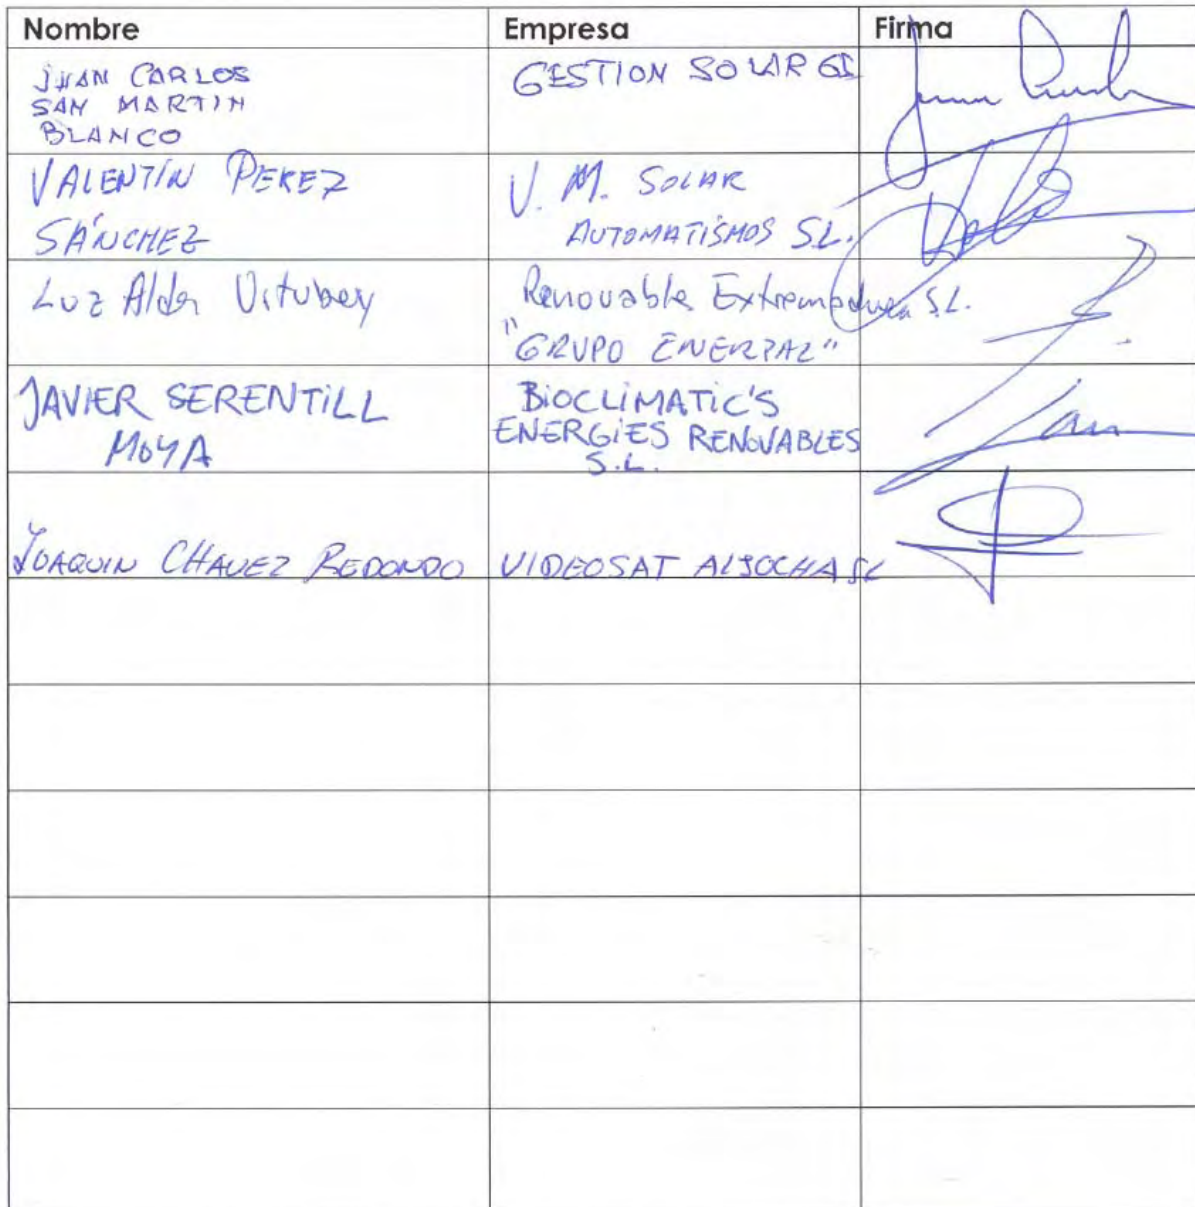 Nombre Empresa Firma
JUAN CARLOS
SAN MARTIN
BLANCO
GESTION SOLAR GI
VALENTÍN PEREZ
SÁNCHEZ
V. M. SOLAR
AUTOMATISMOS SL.
Luz Alder
Renovable Extremadura S.L.
"GRUPO ENERPAL"
JAVIER SERENTILL
MOYA
BIOCLIMATIC'S
ENERGIES RENOVABLES
S.L.
JOAQUIN CHAVEZ REDONDO
VIDEOSAT ALJOCHA SL